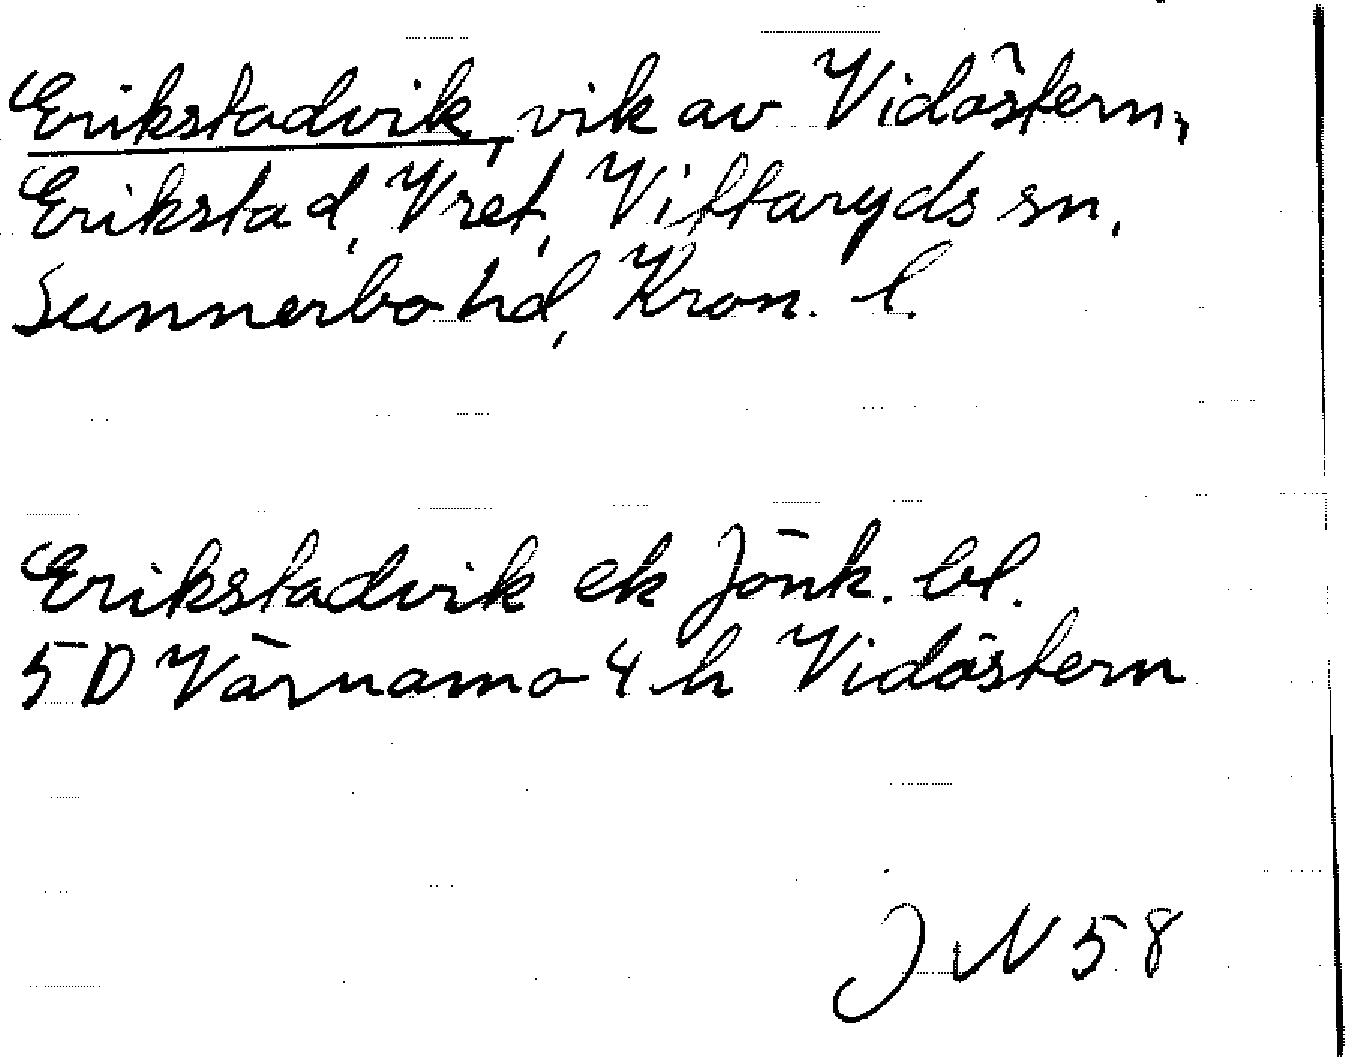 Erikstadvik, vik av Vidöstern,
Erikstad, Vret, Vittaryds sn,
Sunnerbo hd, Kron. l.
Erikstadvik ek Jönk. bl.
5D Värnamo 4 h Vidöstern
JN 58